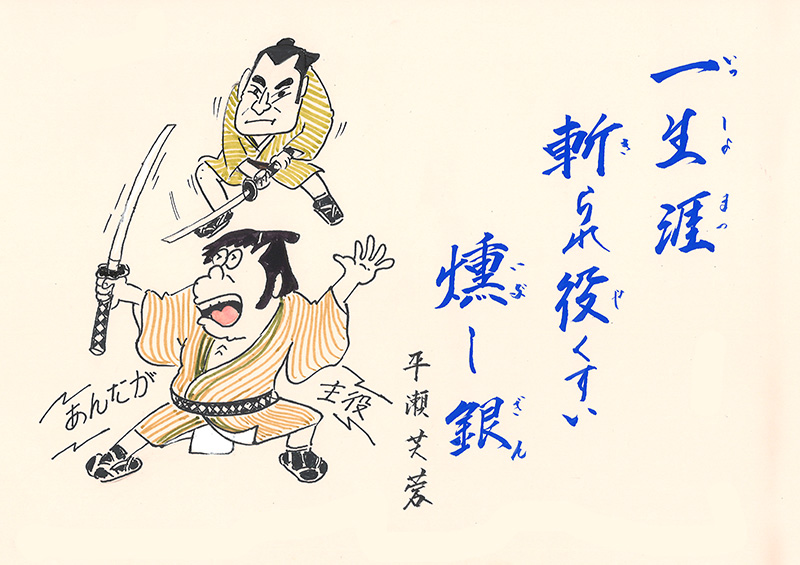 一生涯
いっしょまつ
斬られ役くすい
きや
燻し銀
いぶぎん
平瀬芙蓉
あんたが
主役